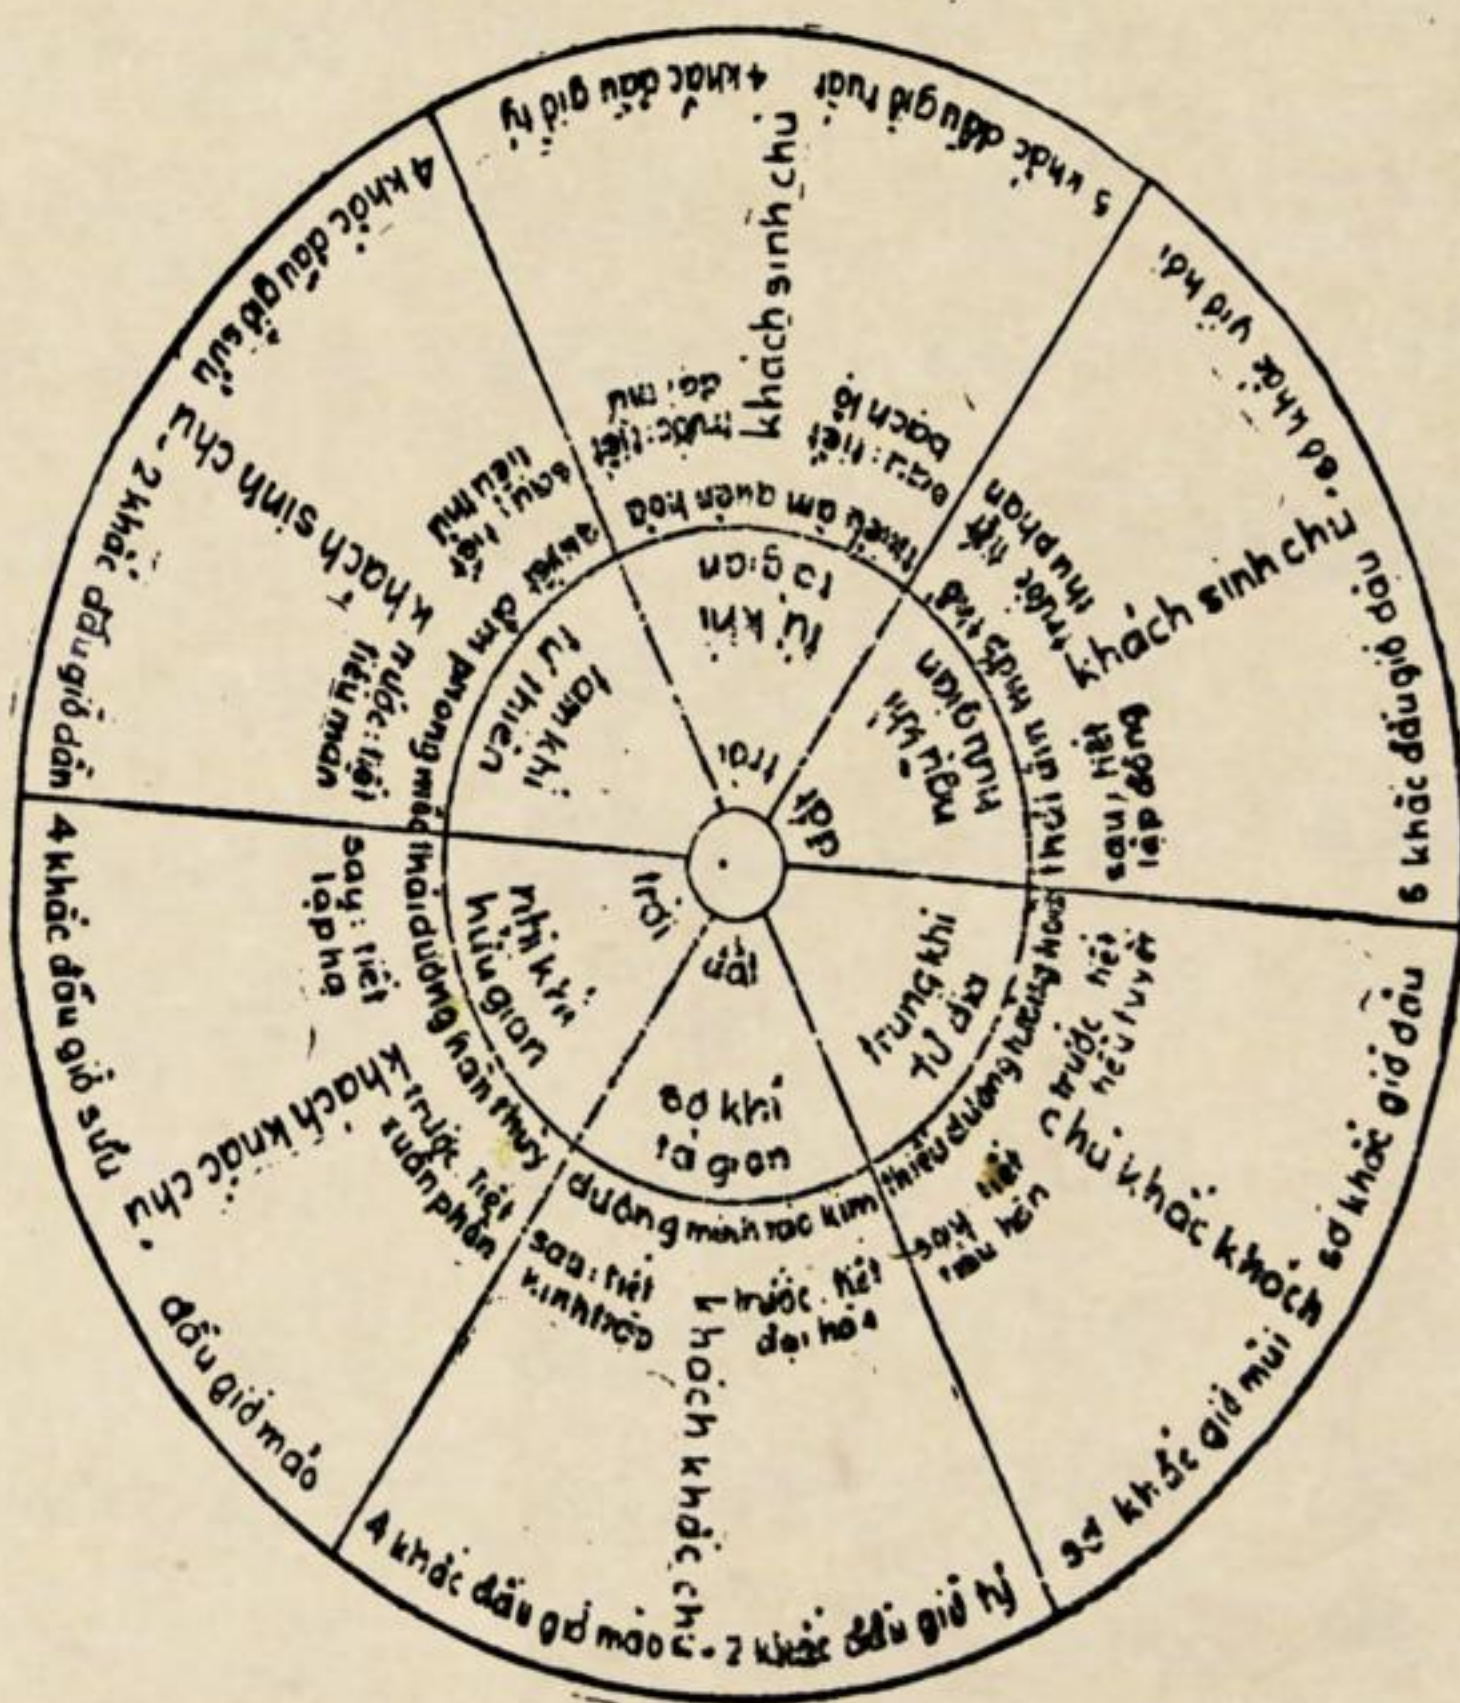 4 khắc đầu giờ tỵ
5 khắc đầu giờ tuất
khách sinh chủ
trước: tiết
đại thử
sau: tiết
bạch lộ
thiếu âm quân hỏa
tứ khí
tả gian
trời
sơ khắc giờ hợi
5 khắc đầu giờ dậu
khách sinh chủ
trước tiết
thu phân
sau: tiết
lập đông
thái âm thấp thổ
ngũ khí
hữu gian
đất
sơ khắc giờ dậu
sơ khắc giờ mùi
chủ khắc khách
trước tiết
tiểu tuyết
sau tiết
tiểu hàn
thiếu dương tướng hỏa
trung khí
tư địa
4 khắc đầu giờ mão - 2 khắc đầu giờ tý
khách khắc chủ
trước. tiết
đại hàn
sau: tiết
kinh trập
dương minh táo kim
sơ khí
tả gian
đất
4 khắc đầu giờ sửu
đầu giờ mão
khách khắc chủ
trước tiết
xuân phân
say: tiết
lập hạ
thái dương hàn thủy
nhị khí
hữu gian
trời
4 khắc đầu giờ sửu
- 2 khắc đầu giờ dần
khách sinh chủ
trước: tiết
tiểu mãn
sau: tiết
tiểu thử
quyết âm phong mộc
tam khí
tư thiên